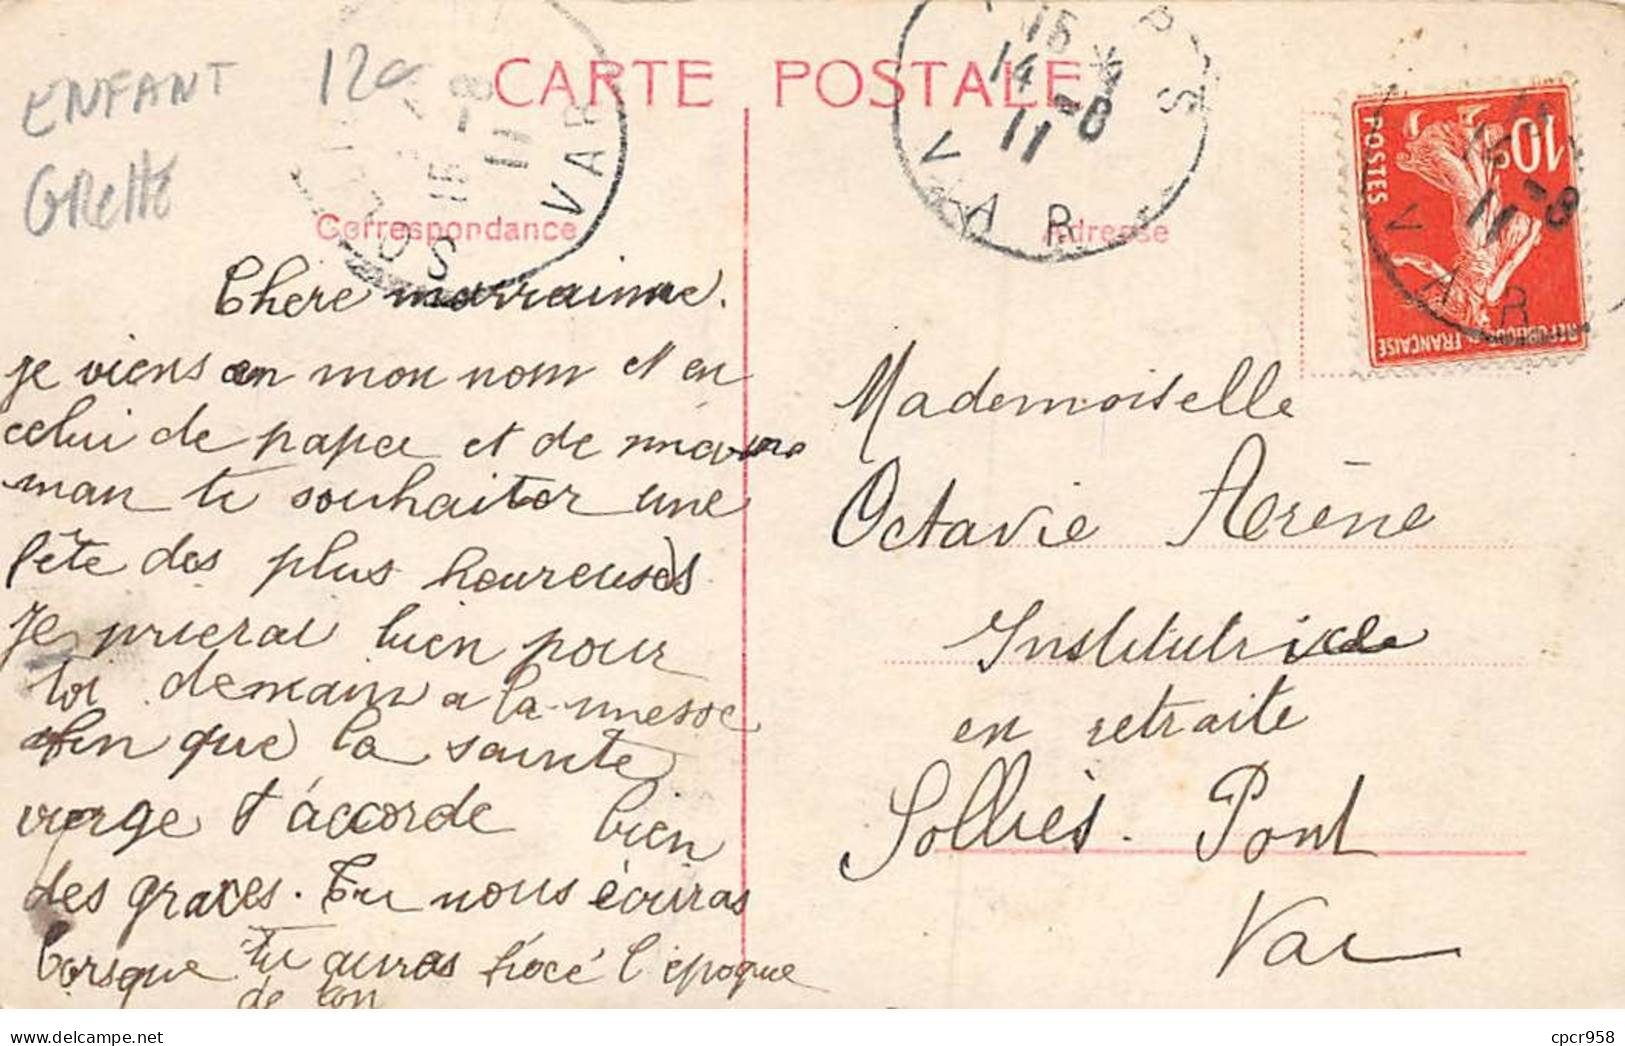 ENFANT
120
GReTTe
CARTE POSTALE
Correspondance
Adresse
VAR
15 -8
11
15
14 -8
11
VAR
10c
POSTES
REPUBLIQUE FRANÇAISE
14
11 -8
VAR
Chere marraine.
je viens en mon nom et en
celui de papa et de ma
man te souhaiter une
fête des plus heureuses
Je prierai bien pour
toi demain a la messe
afin que la sainte
vierge t'accorde bien
des graces. Tu nous écriras
lorsque tu auras fixé l'époque
de ton
Mademoiselle
Octavie Arène
Institutrice
en retraite
Solliès-Pont
Var
cpcr958